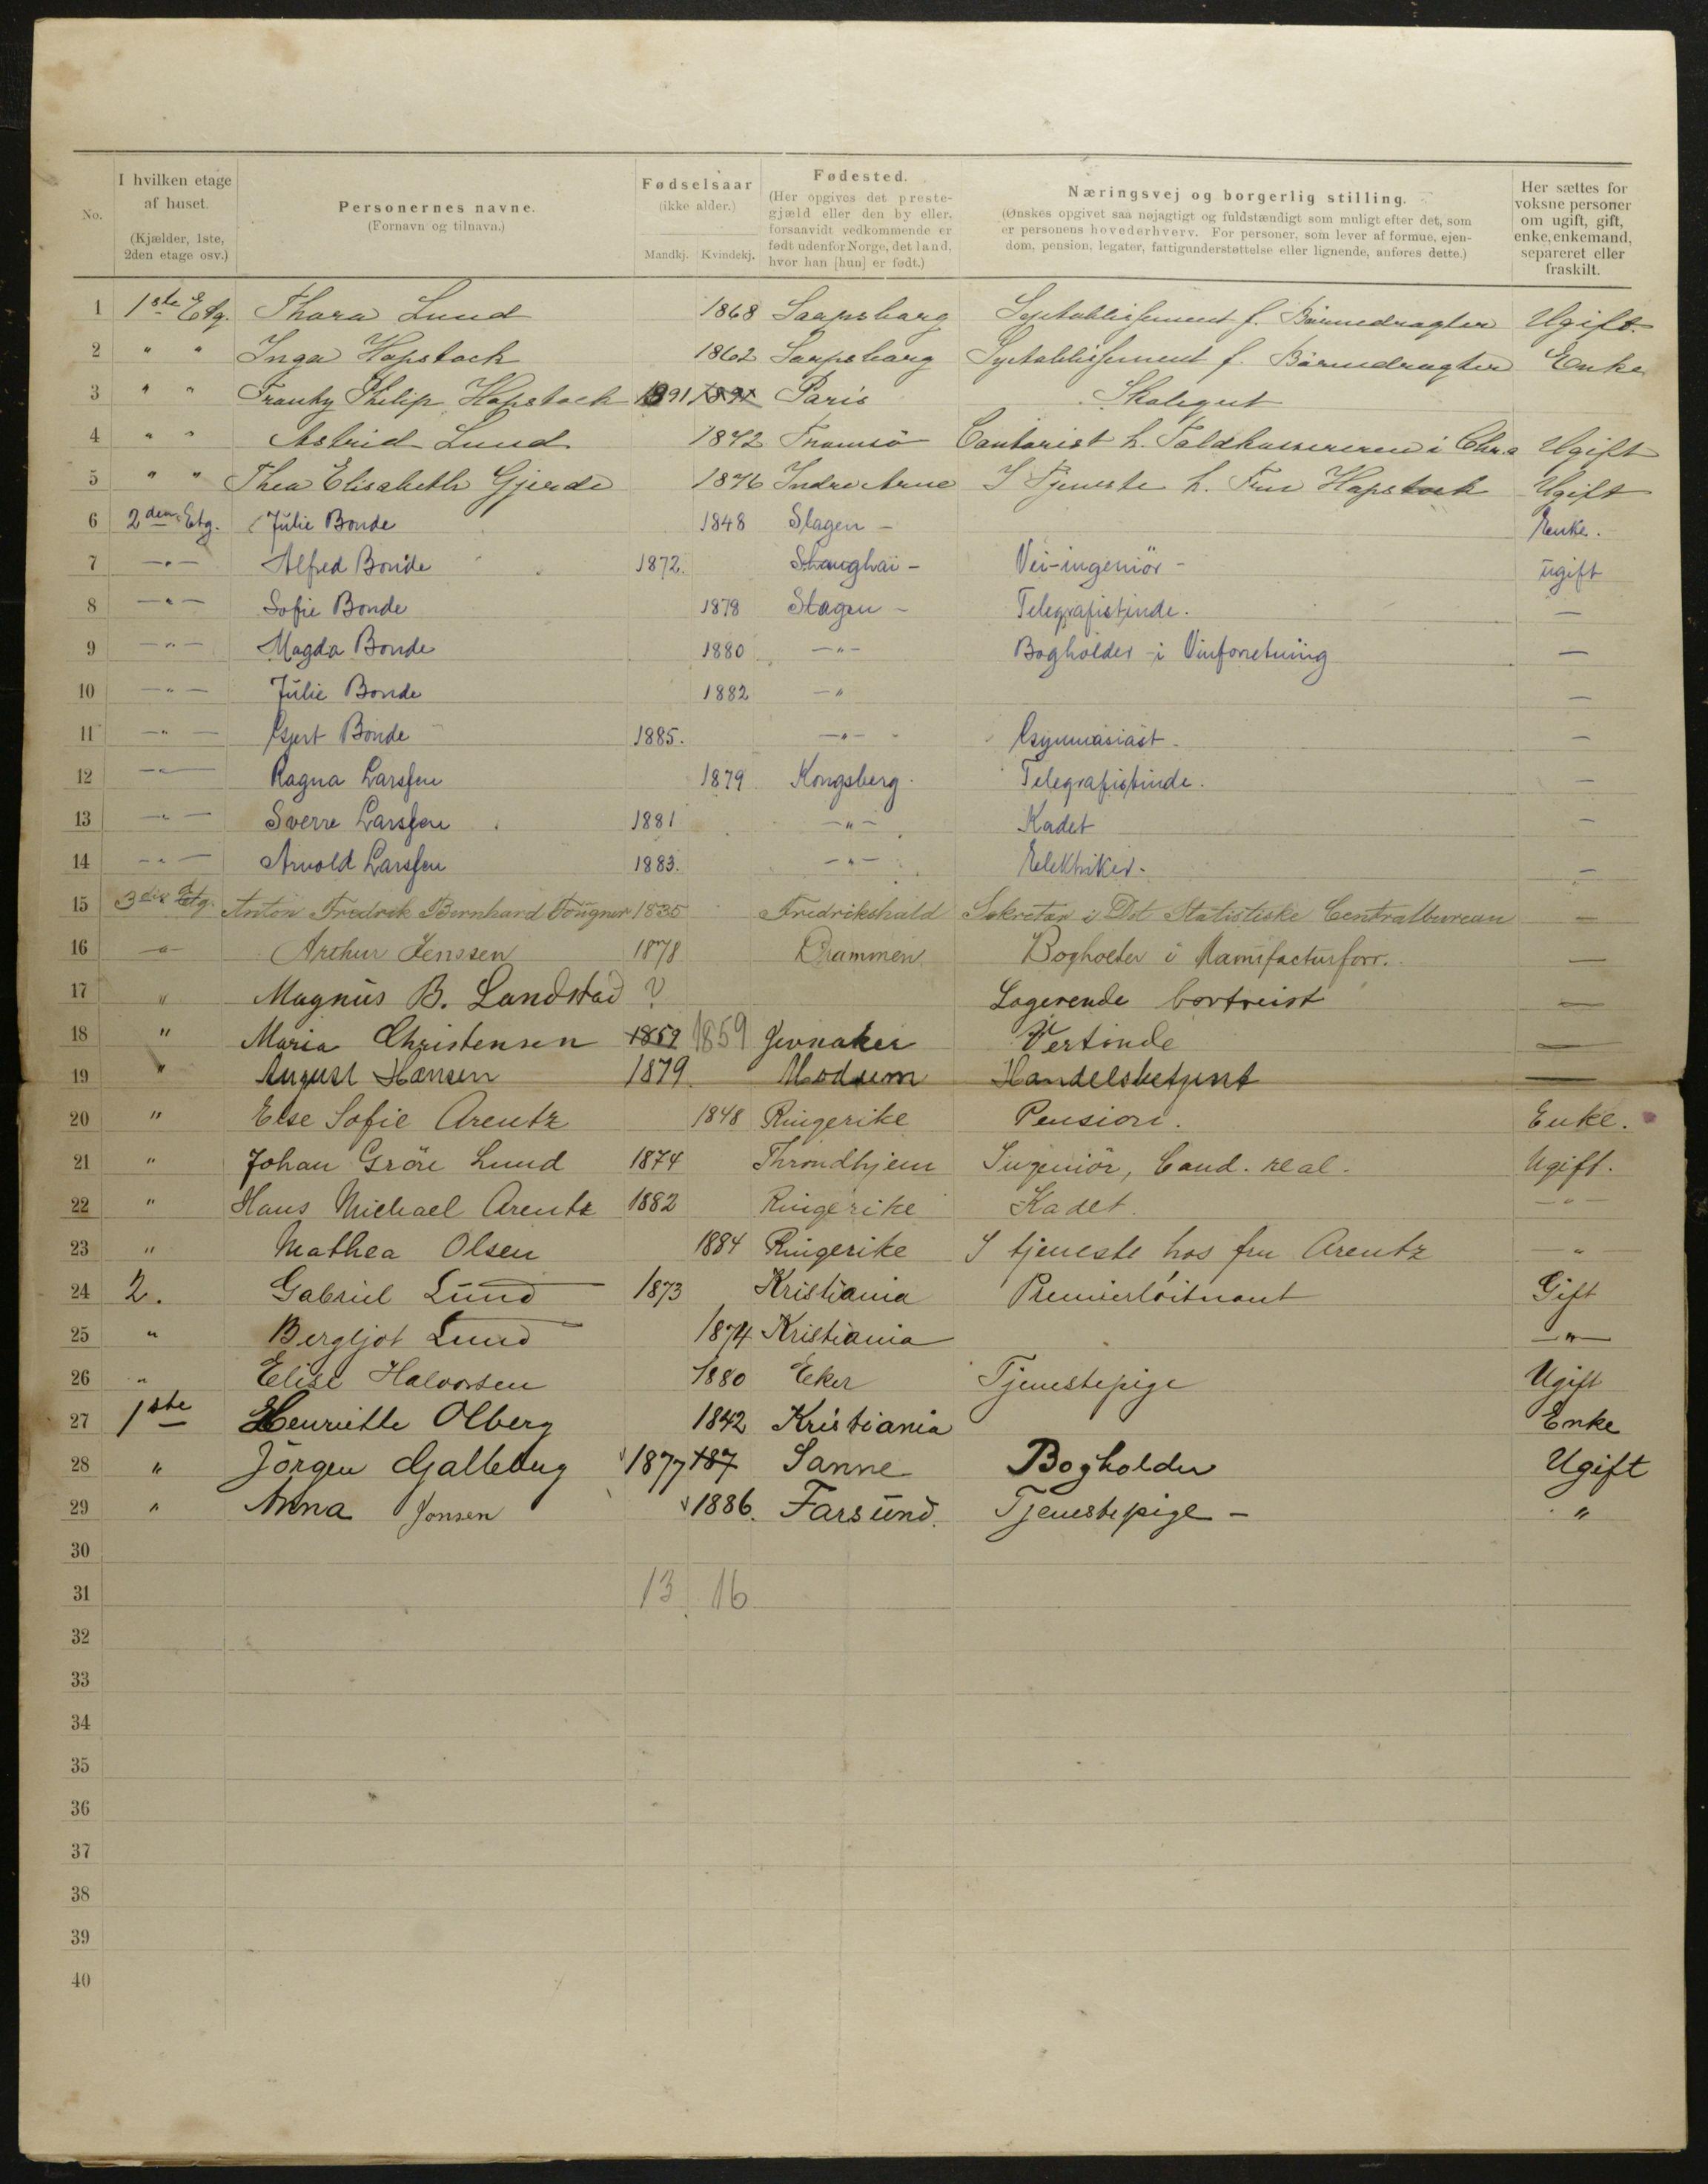 No.
I hvilken etage af huset. (Kjælder, 1ste, 2den etage osv.)
Personernes navne. (Fornavn og tilnavn.)
Fødselsaar (ikke alder.) Mandkj. Kvindekj.
Fødested. (Her opgives det prestegjæld eller den by eller, forsaavidt vedkommende er født udenfor Norge, det land, hvor han [hun] er født.)
Næringsvej og borgerlig stilling. (Ønskes opgivet saa nøjagtigt og fuldstændigt som muligt efter det, som er personens hovederhverv. For personer, som lever af formue, ejendom, pension, legater, fattigunderstøttelse eller lignende, anføres dette.)
Her sættes for voksne personer om ugift, gift, enke, enkemand, separeret eller fraskilt.
1 1ste Etg. Thora Lund 1868 Sarpsborg Syetablissement f. Börnedragter Ugift.
2 " " Inga Hapstock 1862 Sarpsborg Syetablissement f. Börnedragter Enke
3 " " Franky Philip Hapstock 1891 1891 Paris Skolegut
4 " " Astrid Lund 1872 Tromsö Contorist h. Toldkassereren i Chr.a Ugift
5 " " Thea Elisabeth Gjerde 1876 Indre Arne I Tjeneste h. Fru Hapstock Ugift
6 2den Etg. Julie Bonde 1848 Slagen - Enke.
7 -"- Alfred Bonde 1872. Shanghai - Vei-ingeniör - ugift
8 -"- Sofie Bonde 1878 Slagen - Telegrafistinde. -
9 -"- Magda Bonde 1880 -"- Bogholder i Vinforretning -
10 -"- Julie Bonde 1882 -" -
11 -"- Gjert Bonde 1885. -"- Gymnasiast. -
12 -"- Ragna Larssen 1879 Kongsberg. Telegrafistinde. -
13 -"- Sverre Larssen 1881 -"- Kadet -
14 -"- Arnold Larssen 1883. -"- Elektriker. -
15 3die Etg. Anton Fredrik Bernhard Fougner 1835 Fredrikshald Sekretær i Det Statistiske Centralbureau -
16 -"- Arthur Jenssen 1878 Drammen. Bogholder i Manufacturforr. -
17 " Magnus B. Landstad ? Logerende bortreist -
18 " Maria Christensen 1859 1859 Jevnaker Vertinde -
19 " August Hansen 1879. Modum Handelsbetjent -
20 " Else Sofie Arentz 1848 Ringerike Pension. Enke.
21 " Johan Gröre Lund 1874 Throndhjem Ingeniör, Cand. real. Ugift.
22 " Hans Michael Arentz 1882 Ringerike Kadet. -"-
23 " Mathea Olsen 1884 Ringerike I tjeneste hos fru Arentz -"
24 2. Gabriel Lund 1873 Kristiania Premierlöitnant Gift
25 " Bergljot Lund 1874 Kristiania -"-
26 " Elise Halvorsen 1880 Eker Tjenestepige Ugift
27 1ste Henriette Olberg 1842 Kristiania Enke
28 " Jörgen Galteberg 1877 187 Sanne Bogholder Ugift
29 " Anna Jonsen 1886. Farsund. Tjenestepige - "
30
31 13 16
32
33
34
35
36
37
38
39
40